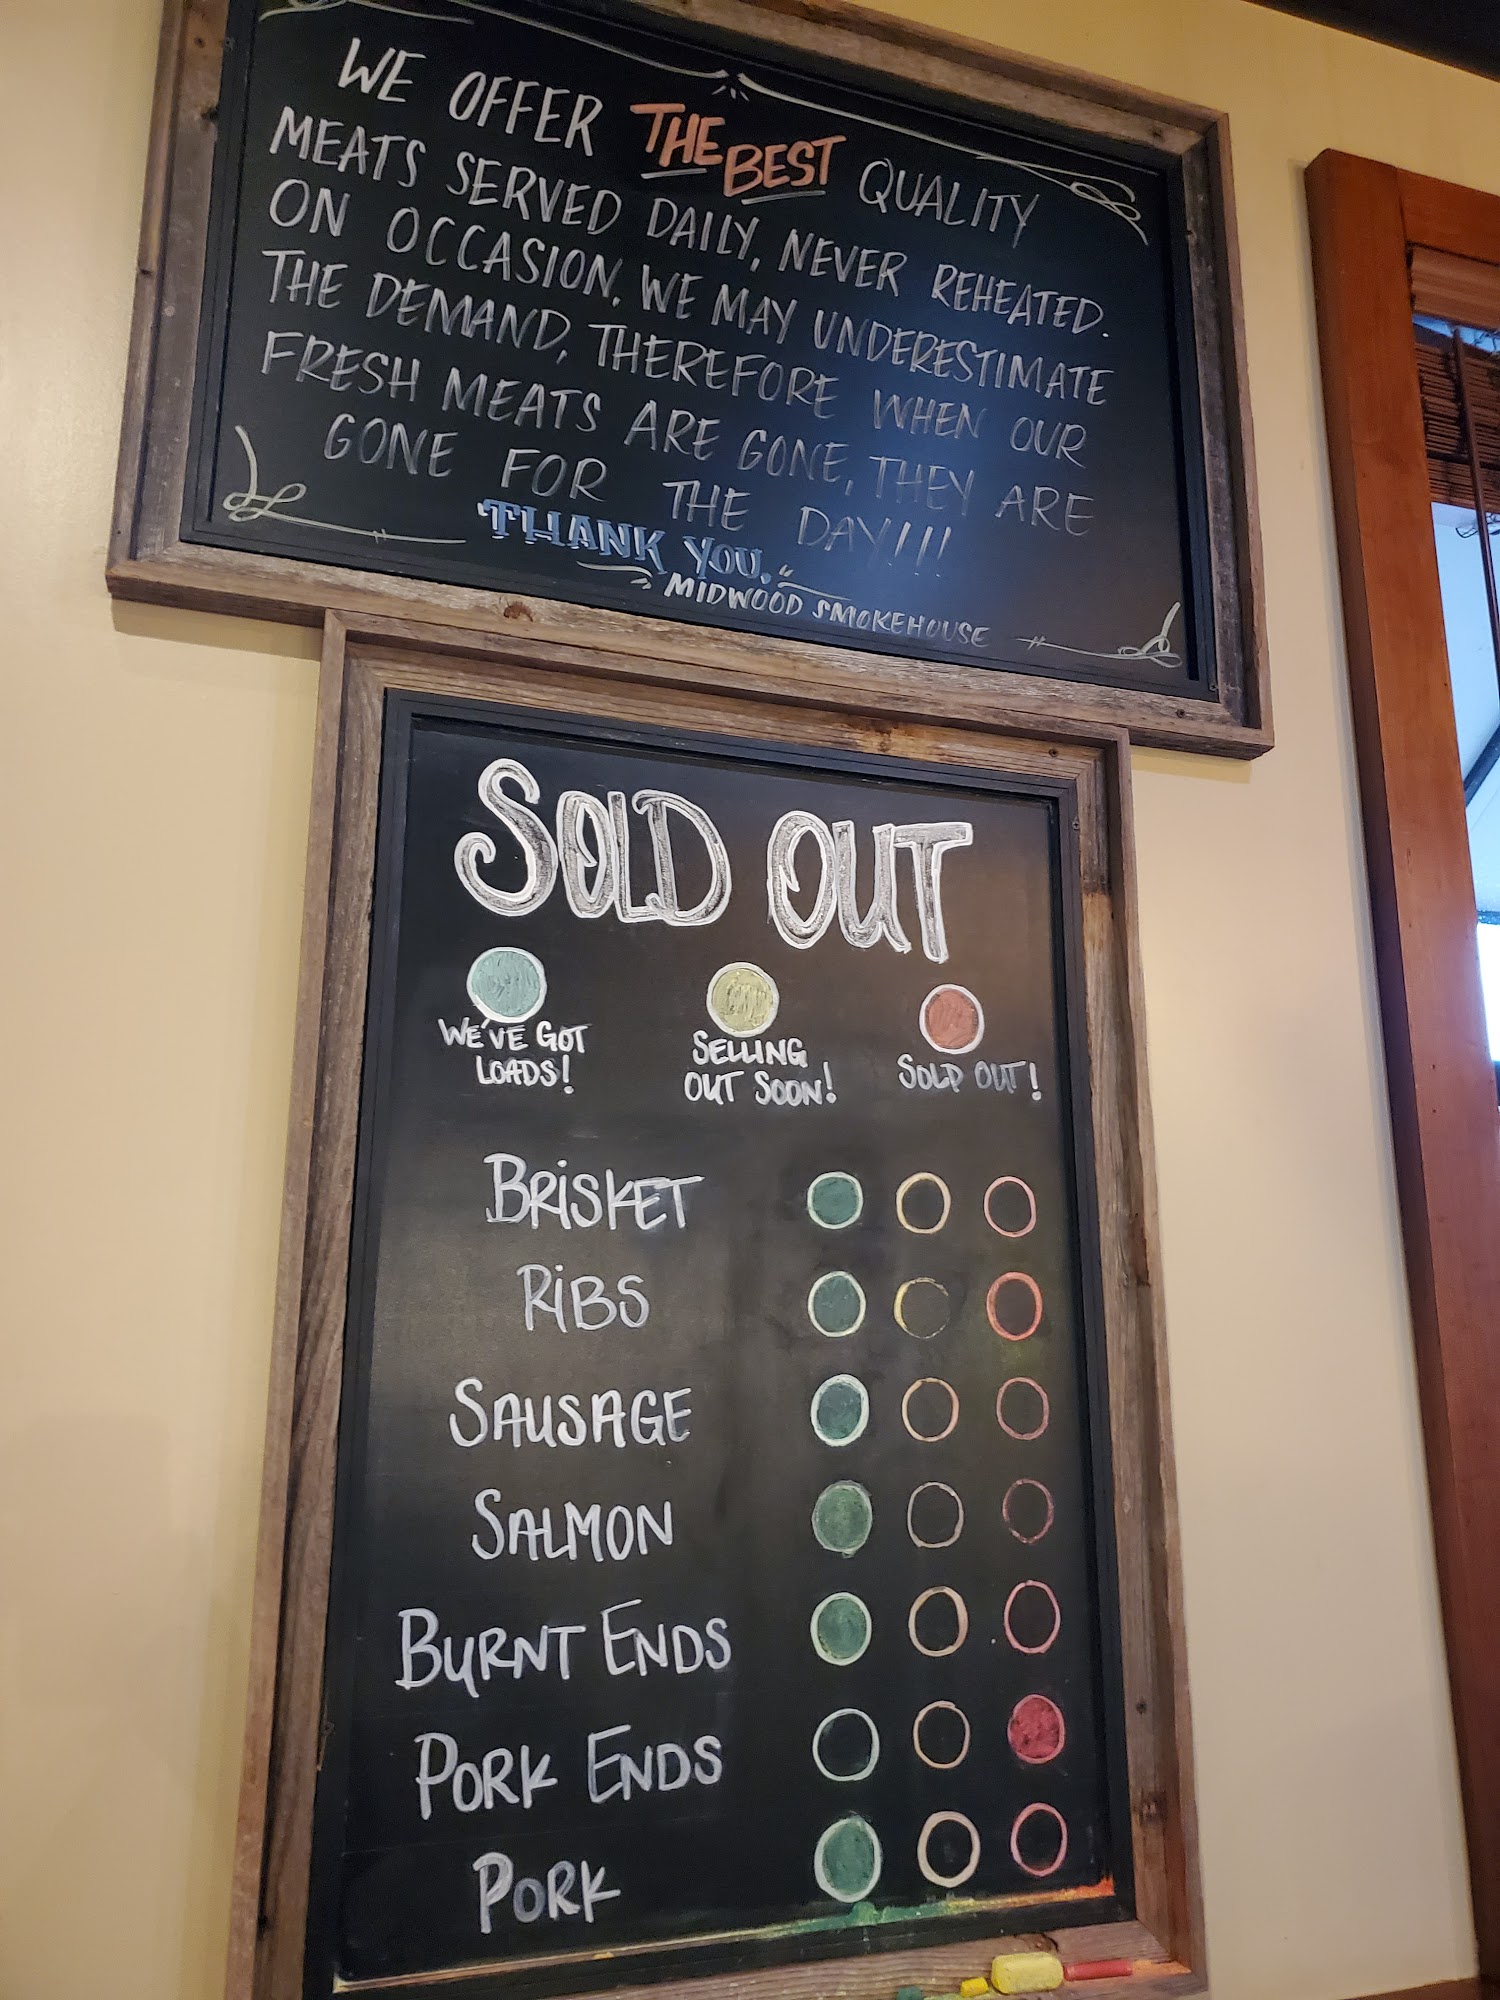 WE OFFER THE BEST QUALITY
MEATS SERVED DAILY, NEVER REHEATED.
ON OCCASION. WE MAY UNDERESTIMATE
THE DEMAND, THEREFORE WHEN OUR
FRESH MEATS ARE GONE, THEY ARE
GONE FOR THE DAY!!!
THANK YOU.
MIDWOOD SMOKEHOUSE
SOLD OUT
WE'VE GOT
LOADS!
SELLING
OUT SOON!
SOLD OUT!
BRISKET
RIBS
SAUSAGE
SALMON
BURNT ENDS
PORK ENDS
PORK